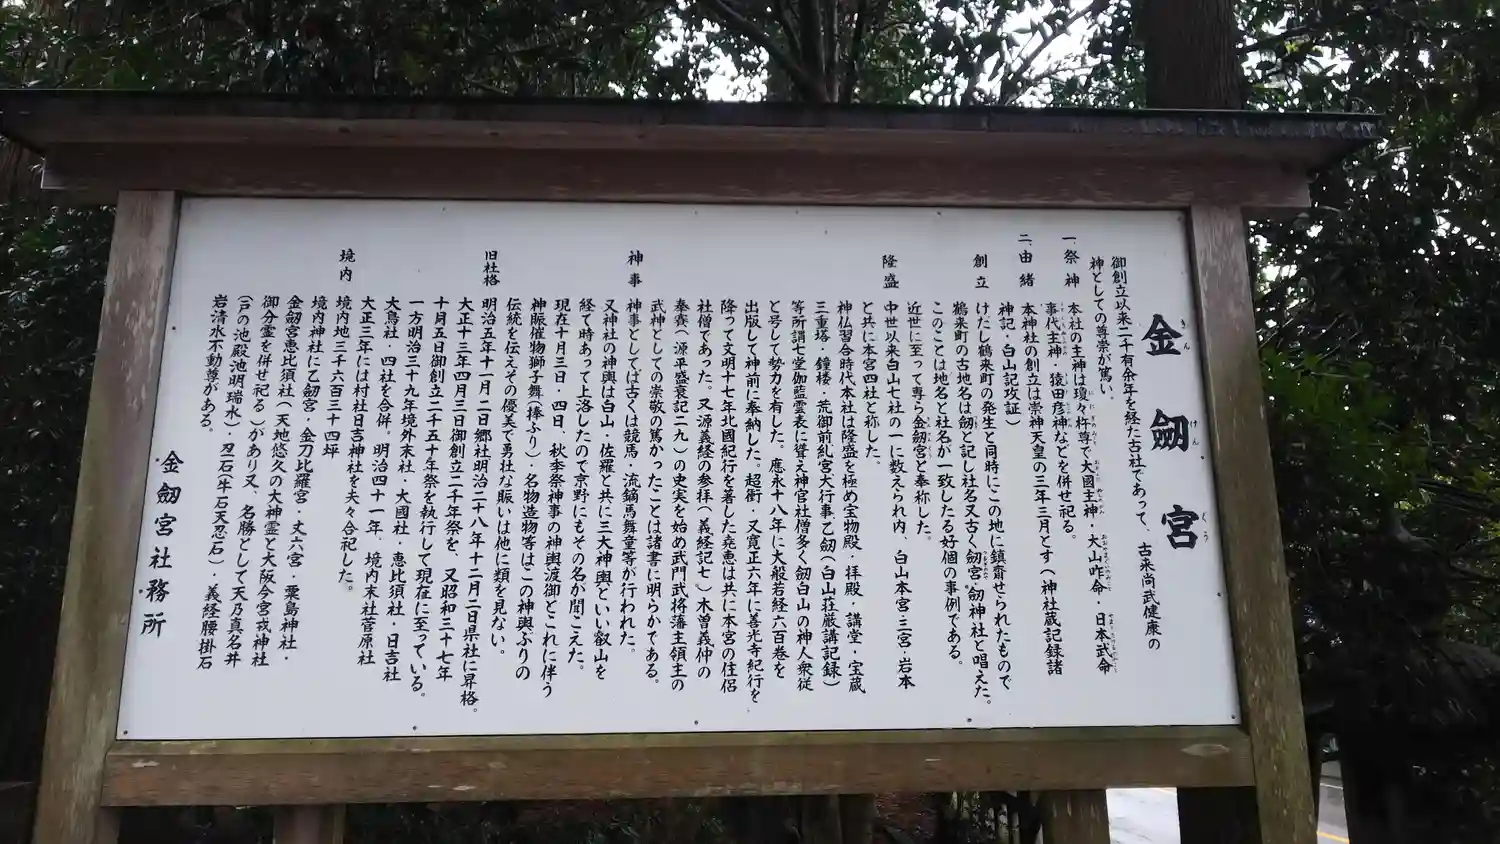 金劔宮
御創立以来二千有余年を経た古社であって、古来尚武健康の
神としての尊崇が篤い。
一、祭神 本社の主神は瓊々杵尊で大國主神・大山咋命・日本武命
事代主神・猿田彦神などを併せ祀る。
二、由緒 本神社の創立は崇神天皇の三年三月とす(神社蔵記録諸
神記・白山記攷証)
創立 けだし鶴来町の発生と同時にこの地に鎮齋せられたもので
鶴来町の古地名は劔と記し社名又古く劔宮・劔神社と唱えた。
このことは地名と社名が一致したる好個の事例である。
近世に至って専ら金劔宮と奉称した。
隆盛 中世以来白山七社の一に数えられ内、白山本宮・三宮・岩本
と共に本宮四社と称した。
神仏習合時代本社は隆盛を極め宝物殿・拝殿・講堂・宝蔵
三重塔・鐘楼・荒御前糺宮大行事乙劔(白山荘厳講記録)
等所謂七堂伽藍雲表に聳え神官社僧多く劔白山の神人衆徒
と号して勢力を有した。應永十八年に大般若経六百巻を
出版して神前に奉納した。超衝・又寛正六年に善光寺紀行を
降って文明十七年北國紀行を著した尭恵は共に本宮の住侶
社僧であった。又源義経の参拝(義経記七)木曽義仲の
奉賽(源平盛衰記二九)の史実を始め武門武将藩主領主の
武神としての崇敬の篤かったことは諸書に明らかである。
神事 神事としては古くは競馬・流鏑馬舞童等が行われた。
又神社の神輿は白山・佐羅と共に三大神輿といい叡山を
経て時あって上洛したので京野にもその名が聞こえた。
現在十月三日・四日、秋季祭神事の神輿渡御とこれに伴う
神賑催物獅子舞(棒ふり)・名物造物等はこの神輿ぶりの
伝統を伝えその優美で勇壮な賑いは他に類を見ない。
旧社格 明治五年十一月二日郷社明治二十八年十二月二日県社に昇格。
大正十三年四月三日御創立二千年祭を、又昭和三十七年
十月五日御創立二千五十年祭を執行して現在に至っている。
一方明治三十九年境外末社・大國社・恵比須社・日吉社
大鳥社・四社を合併。明治四十一年、境内末社菅原社
大正三年には村社日吉神社を夫々合祀した。
境内 境内地三千六百三十四坪
境内神社に乙劔宮・金刀比羅宮・丈六宮・粟島神社・
金劔宮恵比須社(天地悠久の大神霊と大阪今宮戎神社
御分霊を併せ祀る)があり又、名勝として天乃真名井
(戸の池殿池明瑞水)。忍石(牛石天忍石)・義経腰掛石
岩清水不動尊がある。
金劔宮社務所